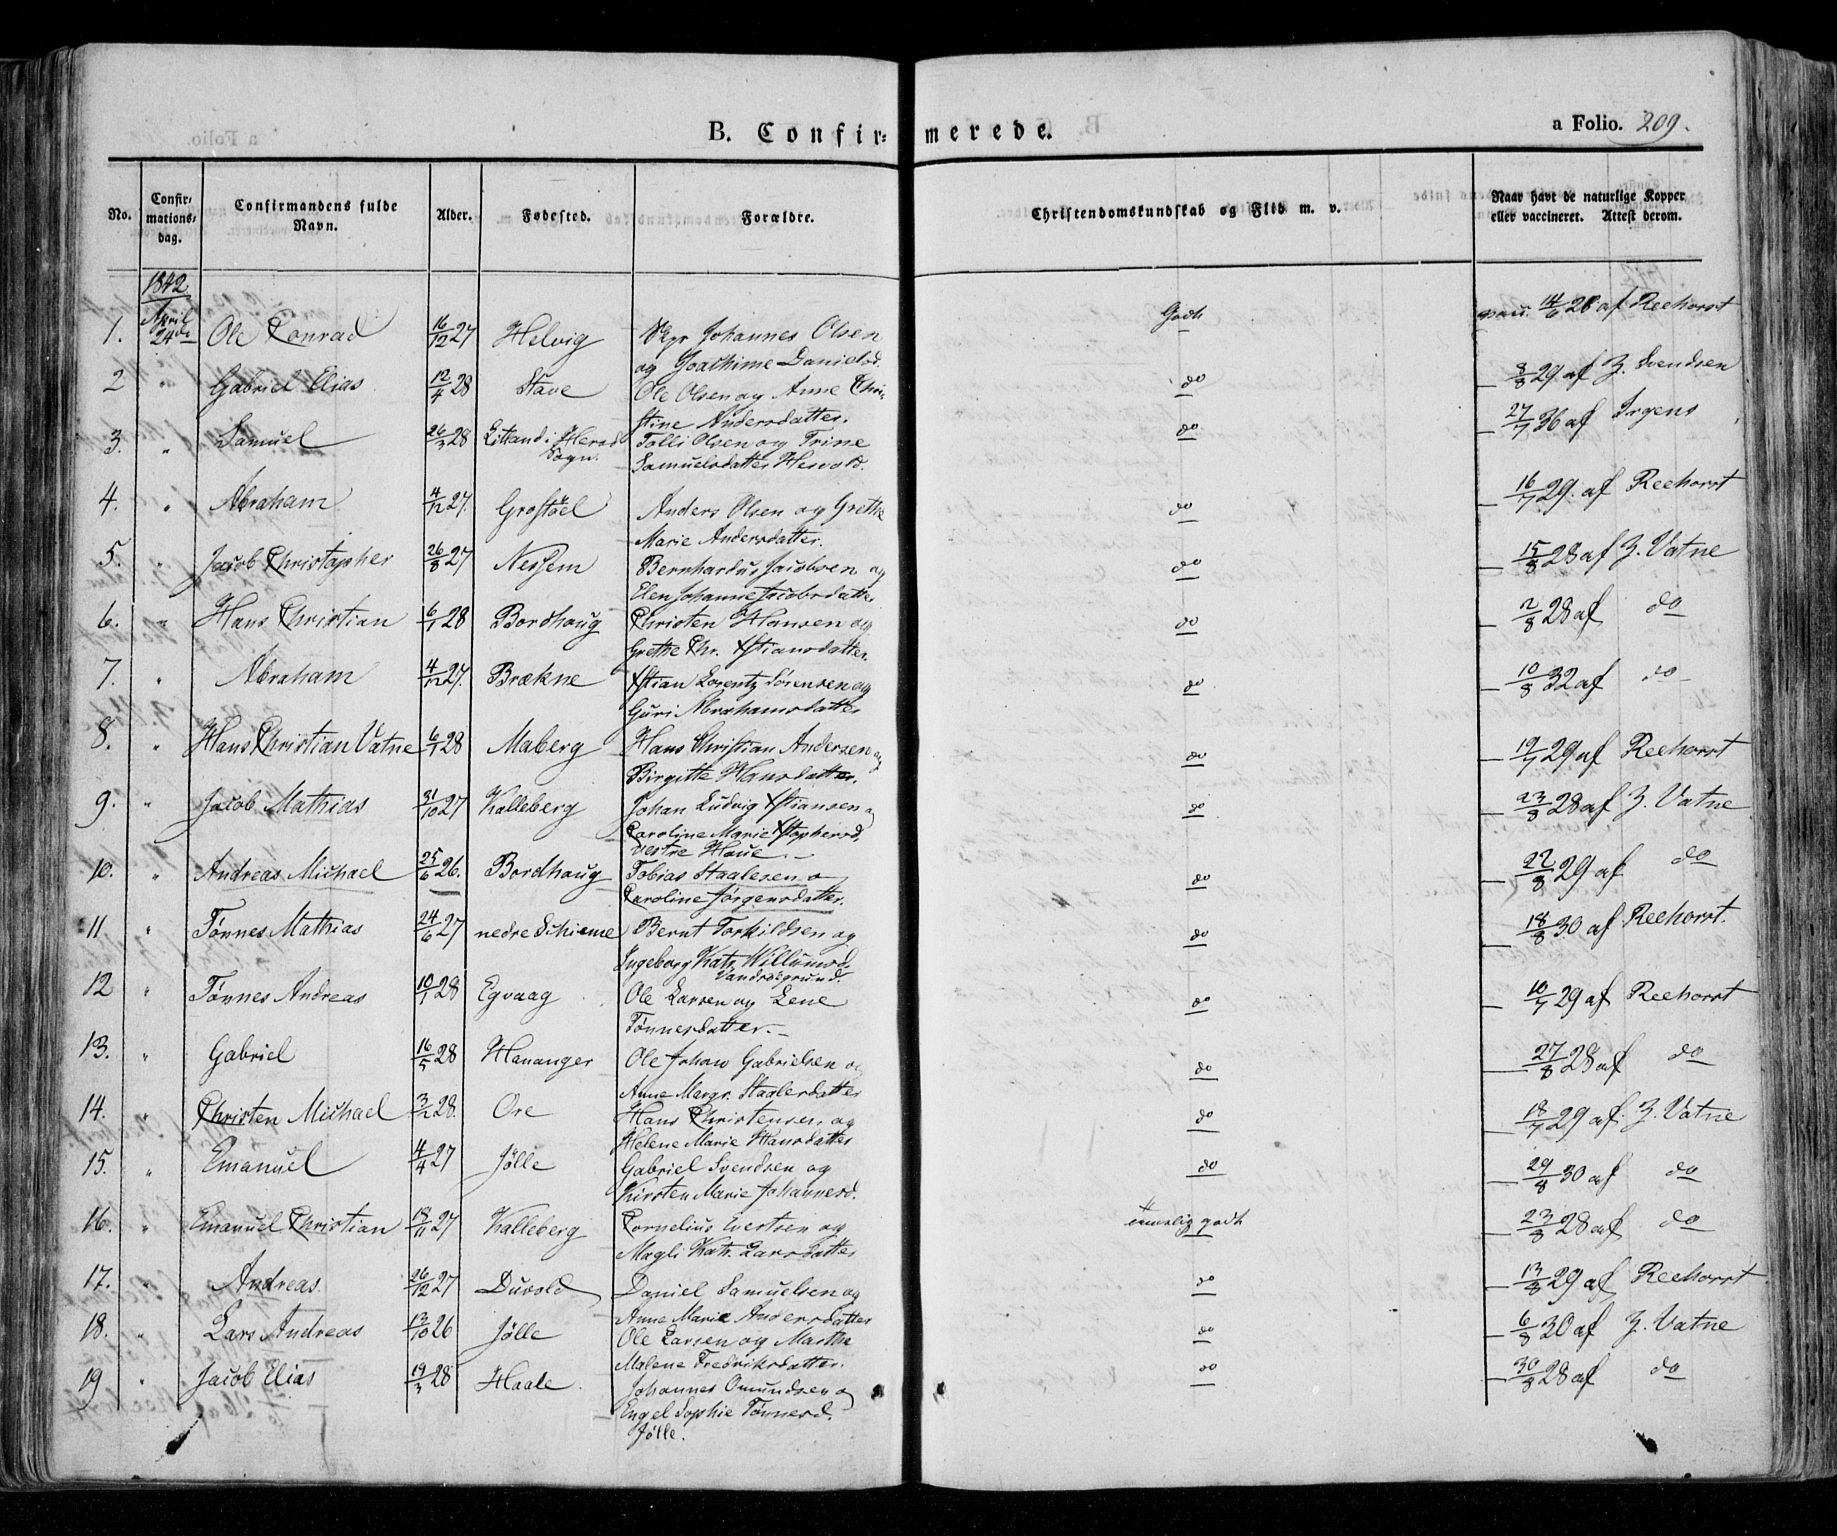 B. Confir= merede.
a Folio. 209.
No. Confir= mations= dag. Confirmandens fulde Navn. Alder. Fødested. Forældre. Christendomskundskab og Flid m. v. Naar havt de naturlige Kopper eller vaccineret. Attest derom.
1842
1. April 24de Ole Conrad 16/12 27 Helvig Johannes Olsen Godt vacc. 14/6 28 af Reehorst
og Joachime Danielsd.
2 " Gabriel Elias 12/4 28 Stave Ole Olsen og Anne Chri= do — 8/8 29 af Z. Svendsen
stine Andersdatter.
3. " Samuel 26/3 28 Eitland i Herad Sogn. Tolli Olsen og Trine do — 27/7 36 af Irgens
Samuelsdatter Hervold.
4. " Abraham 4/12 27. Grostøel Anders Olsen og Grethe do — 16/7 29. af Reehorst
Marie Andersdatter.
5. " Jacob Christopher 26/8 27 Nessem Bernhardus Jacobsen og do — 15/8 28 af Z. Vatne
Elen Johanne Jacobsdatter
6. " Hans Christian 6/1 28 Bordhaug Christen Hansen og do — 2/8 28 af do
Grethe Chr. Xstiansdatter.
7. " Abraham 4/12 27. Brækne Xstian Lorentz Sørensen og do — 10/8 32 af do
Guri Abrahamsdatter
8. " Hans Christian Vatne 6/1 28 Maberg Hans Christian Andersen og do — 19/7 29 af Reehorst
Birgitte Hansdatter.
9. " Jacob Mathias 31/10 27 Kalleberg Johan Ludvig Xstiansen o do — 23/8 28 af Z. Vatne
Caroline Marie Xstophersd.
vestre Haue.
10. " Andreas Michael 25/6 26. Bordhaug Tobias Staalesen o do — 22/8 29 af do
Caroline Jørgensdatter.
11 " Tønnes Mathias 24/6 27 nedre Schieme Bernt Torkildsen og do — 18/8 30 af Reehorst.
Ingeborg Katr. Willumsd.
Vandsøgrund.
12 " Tønnes Andreas 10/1 28 Egvaag Ole Larsen og Lene do — 10/7 29 af Reehorst
Tønnesdatter.
13. " Gabriel 16/5 28 Hananger Ole Johan Gabrielsen o do — 27/8 28 af do
Anne Margr. Staalesdatter
14. " Christen Michael 3/2 28. Ore Hans Christensen, og do — 18/7 29 af Z. Vatne
Helene Marie Hansdatter
15. " Emanuel 4/4 27 Jølle Gabriel Svendsen og do — 29/8 30 af do
Kirsten Marie Johannesd.
16. " Emanuel Christian 18/11 27 Kalleberg Cornelius Evertsen og temmelig godt — 23/8 28 af do
Magli Katr. Larsdatter
17. " Andreas. 26/12 27 Duvold Daniel Samuelsen og do — 13/8 29 af Reehorst
Anne Marie Andersdatter
18. " Lars Andreas 13/10 26 Jølle Ole Larsen og Martha do — 6/8 30 af Z. Vatne
Malene Fredriksdatter.
19 " Jacob Elias 19/3 28 Haale. Johannes Omundsen o do — 30/8 28 af do
Engel Sophie Tønnesd.
Jølle.